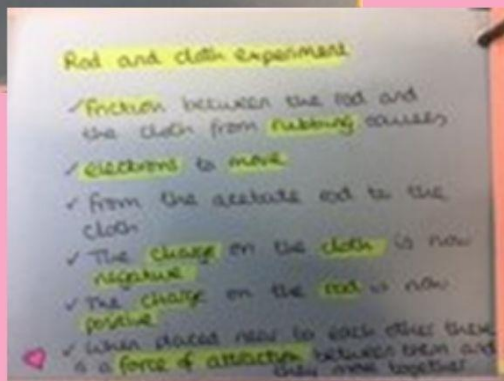 Rod and cloth experiment
✓ Friction between the rod and
the cloth from rubbing causes
✓ electrons to move
✓ From the acetate rod to the
cloth
✓ The charge on the cloth is now
negative
✓ The charge on the rod is now
positive
✓ When placed near to each other there
is a force of attraction between them and
they move together